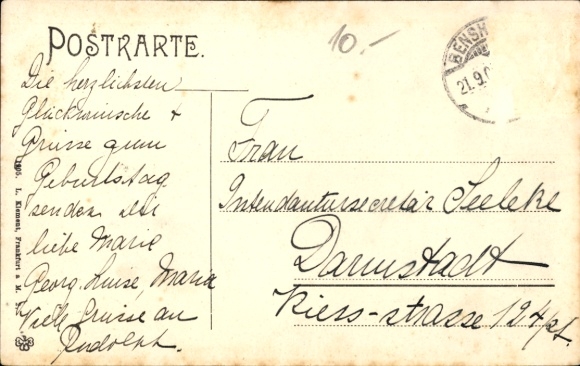 POSTKARTE.
10.-
BENSH
21.9.0
Die herzlichsten
Glückwünsche +
Grüsse zum
Geburtstag
senden dir
liebe Marie
Georg, Luise, Maria
Viele Grüsse an
Rudolph.
Frau
Intendantursecretär Seeleke
Darmstadt
Riess-strasse 124 pt.
L. Klement, Frankfurt a. M.